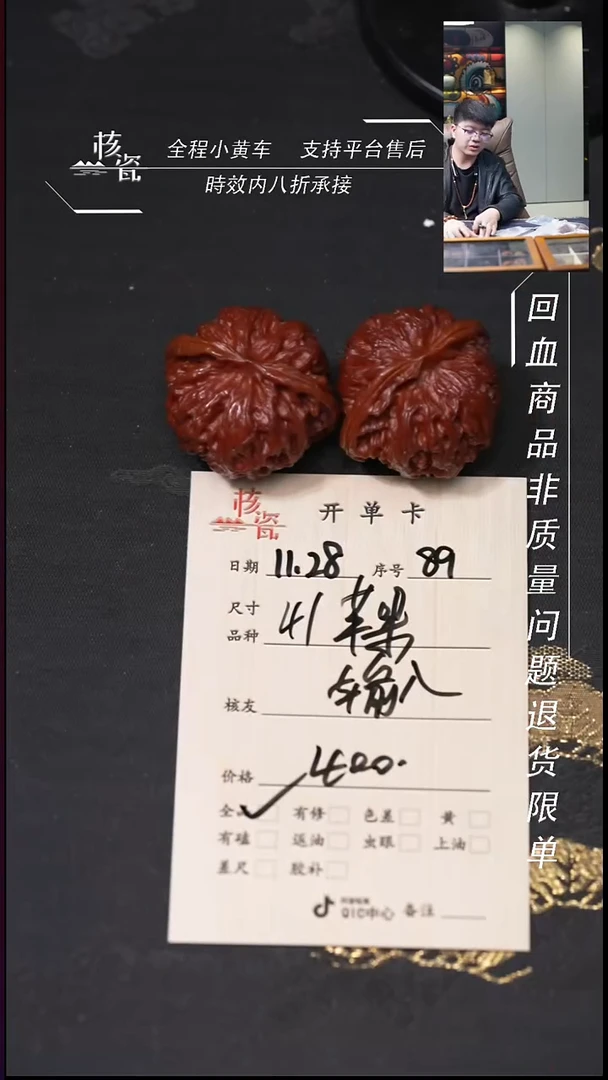 核瓷
全程小黄车 支持平台售后
時效内八折承接
回血商品非质量问题退货限单
核瓷
开单卡
日期 11.28 序号 89
尺寸
品种 41 苹果
核友
价格 400.
全品 有修 色差 黄
有磕 返油 虫眼 上油
差尺 胶补
QIC中心 备注